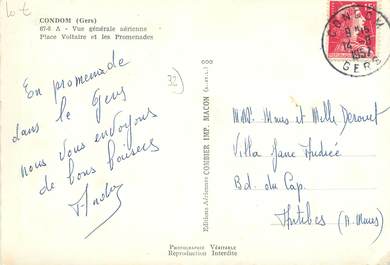 10 €
CONDOM (Gers)
67-6 A - Vue générale aérienne
Place Voltaire et les Promenades
32)
En promenade
dans le Gers
nous vous envoyons
de bons baisers
Editions Aériennes COMBIER IMP. MACON (S.-et-L.)
CONDOM
14
1957
GERS
Mmes et Melle
Villa Jane Andrée
Bd. du Cap.
Antibes (A. Mmes)
PHOTOGRAPHIE VÉRITABLE
Reproduction Interdite